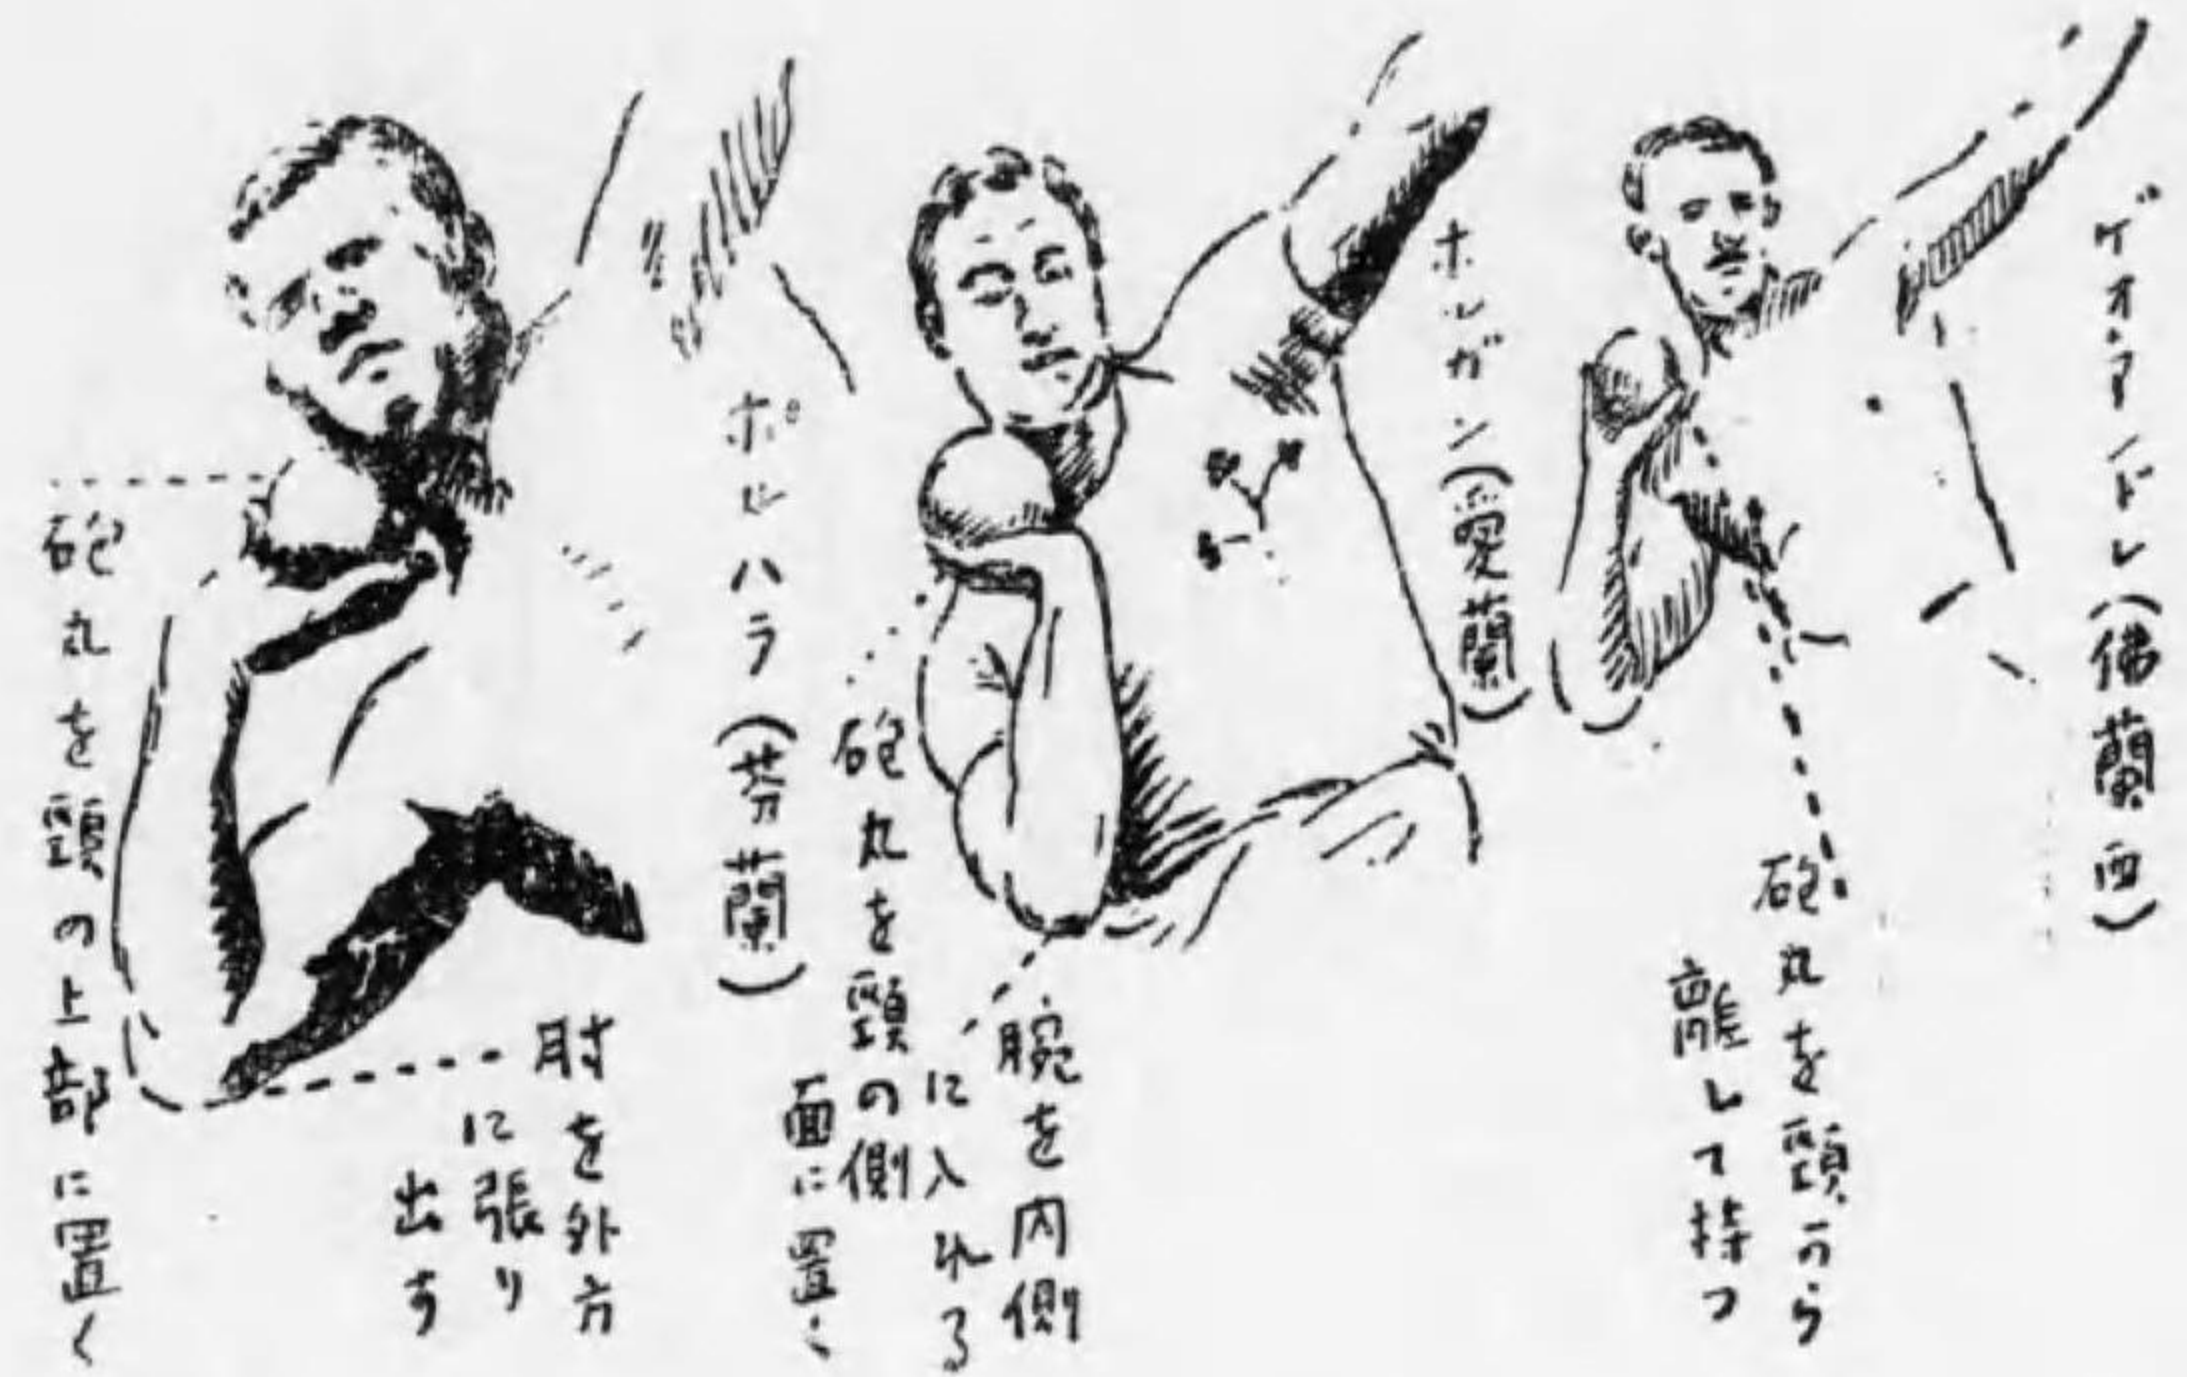 ゲオアンドレ(佛蘭西)
砲丸を頸から
離して持つ
ホルガン(愛蘭)
腕を内側
に入れる
砲丸を頸の側
面に置く
(芬蘭)
肘を外方
に張り
出す
砲丸を頸の上部に置く